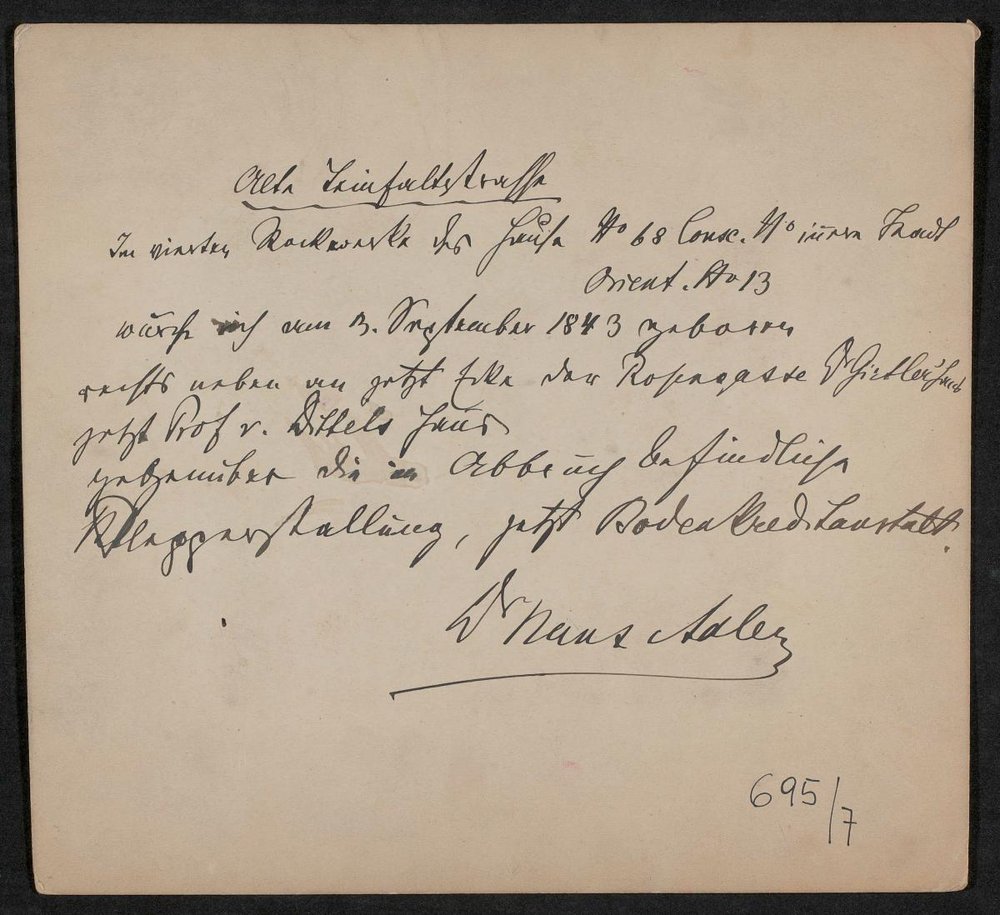 Alte Teinfaltstrasse
Im vierten Stockwerke des Hauses No 68 Consc. No innere Stadt
Orient. No 13
wurde ich am 3. September 1843 geboren
rechts neben an jetzt Ecke der Rosengasse
jetzt Prof v. Dittels Haus
gegenüber die in Abbruch befindliche
Klepperstallung, jetzt Bodenkreditanstalt.
Dr Hans Adler
695/7